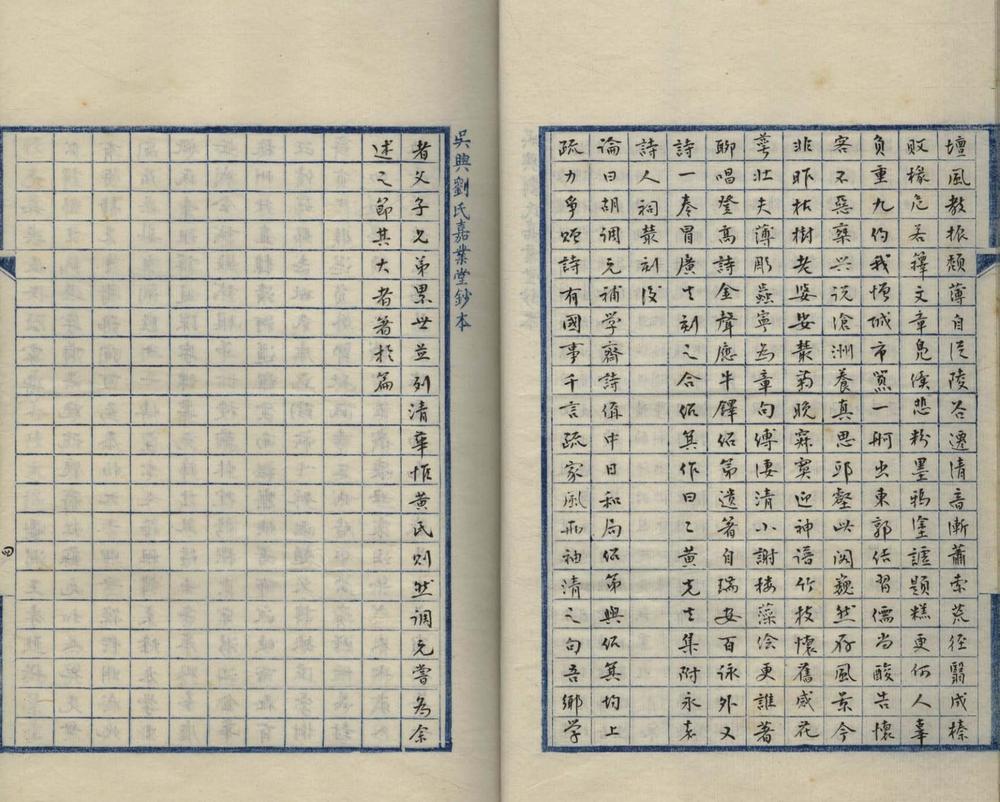 壇風教振頹薄自從陵谷遷清音漸蕭索荒徑翳成榛
敗椽危若籜文章鬼傒悲粉墨鴉塗謔題糕更何人辜
負重九約我憎城市囂一舸出東郭結習儒尚酸告懷
客不惡棄兴説滄洲養真思邱壑此閣巍然存風景今
非昨枯樹老娑娑叢菊晚寂寞迎神语竹枝懷舊感花
萼壯夫薄彫蟲寧為章句縛凄清小謝樓藻绘更誰著
聊唱登高詩金聲應牛鐸绍第遺著自瑞安百咏外又
詩一卷冒廣生刻之合绍箕作曰二黄先生集附永嘉
詩人祠叢刻後
論曰胡調元補学齋詩偁中日和局绍第與绍箕均上
疏力爭贈詩有國事千言疏家風兩袖清之句吾鄉学
吳興劉氏嘉業堂鈔本
者父子兄弟累世並列清華惟黄氏則然调元嘗為余
述之節其大者著於篇
四